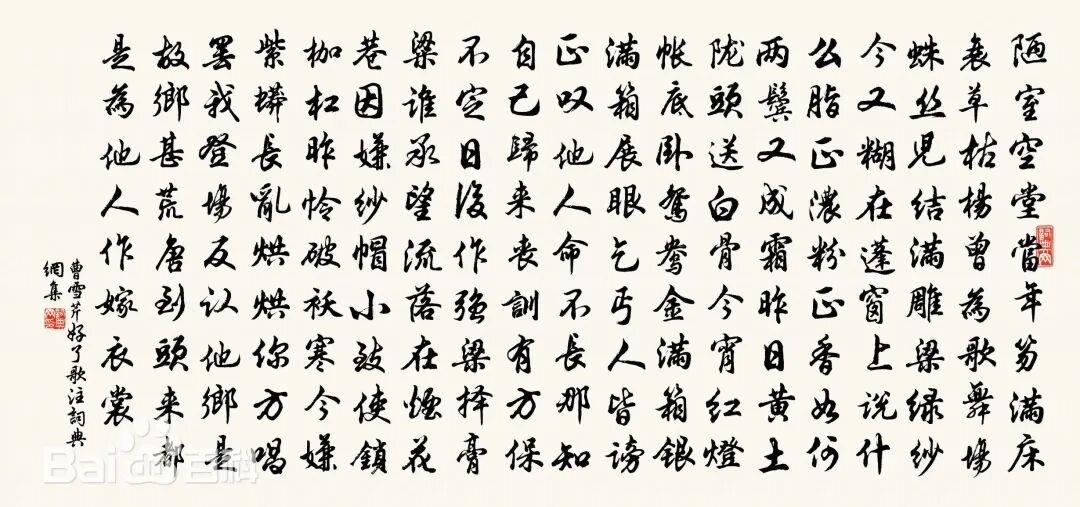 陋室空堂當年笏满床
衰草枯楊曾為歌舞場
蛛丝児结满雕梁绿纱
今又糊在蓬窗上说什
么脂正濃粉正香如何
两鬓又成霜昨日黄土
陇頭送白骨今宵红燈
帐底卧鸳鸯金满箱银
满箱展眼乞丐人皆谤
正叹他人命不長那知
自己歸来丧訓有方保
不定日後作强梁择膏
粱谁承望流落在煙花
巷因嫌纱帽小致使鎖
枷杠昨怜破袄寒今嫌
紫蟒長亂烘烘你方唱
罢我登場反认他鄉是
故鄉甚荒唐到頭来都
是為他人作嫁衣裳
曹雪芹好了歌注詞典
網集
Bai百科